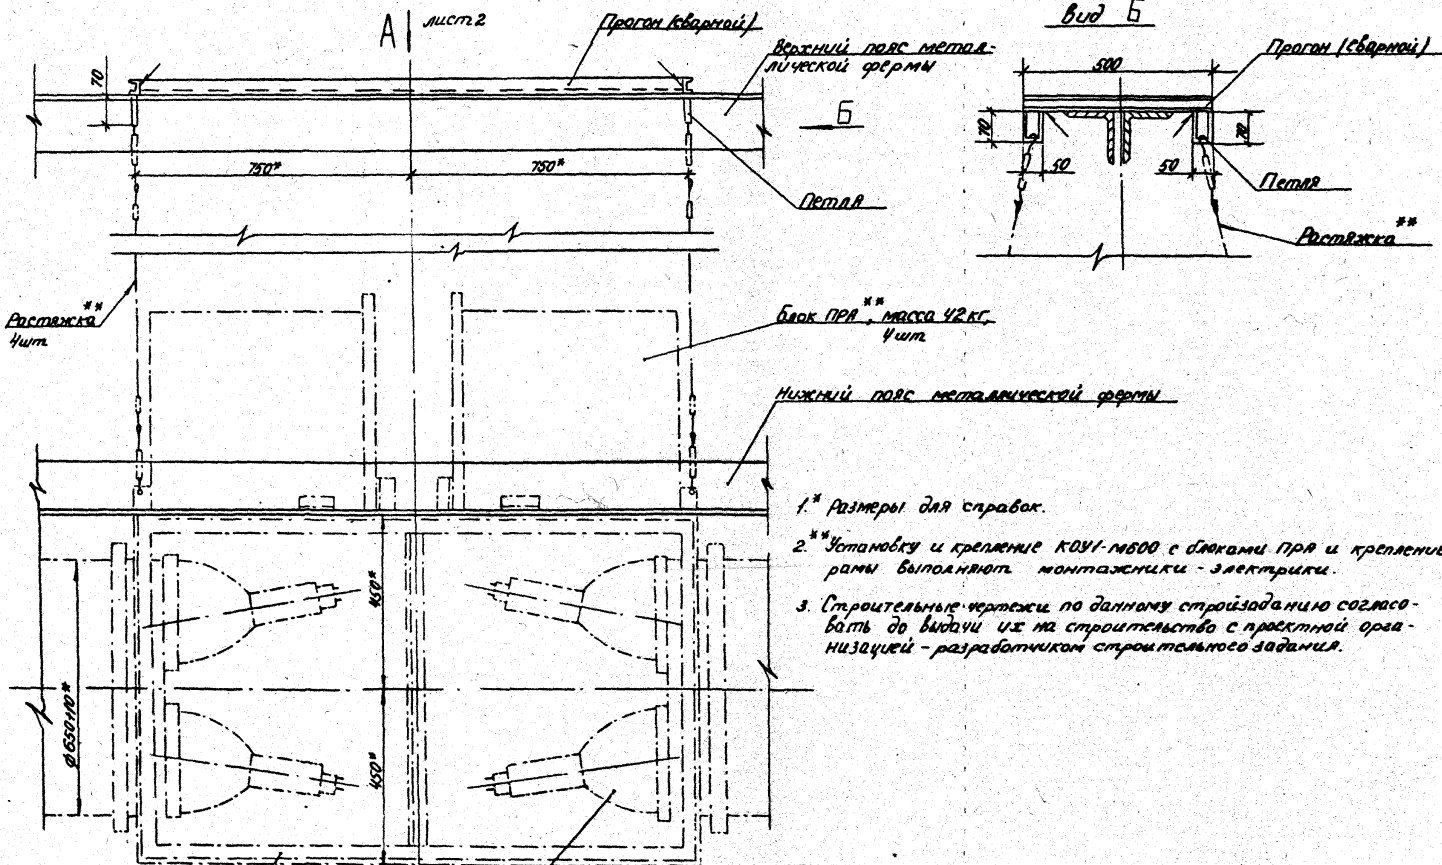 А
лист 2
Прогон (сварной)
Верхний пояс метал-
лической фермы
Б
70
750*
750*
Петля
Растяжка**
4шт
Блок ПРА**, масса 42 кг,
4шт
Нижний пояс металлической фермы
450*
450*
φ650+10*
Вид Б
Прогон (сварной)
500
70
70
50
50
Петля
Растяжка**
1.* Размеры для справок.
2.** Установку и крепление КОУ1-М600 с блоками ПРА и крепление
рамы выполняют монтажники - электрики.
3. Строительные чертежи по данному стройзаданию согласо-
вать до выдачи их на строительство с проектной орга-
низацией - разработчиком строительного задания.